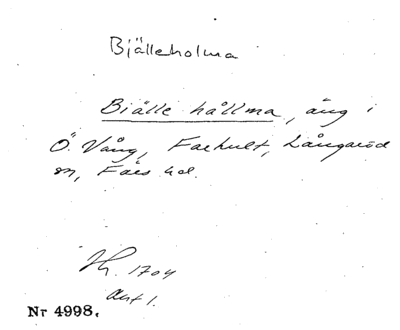 Bjälleholma
Biälle hållma, äng i
Ö. Vång, Farhult, Långaröd
sn, Färs hd.
Jh. 1704
akt 1.
Nr 4998.